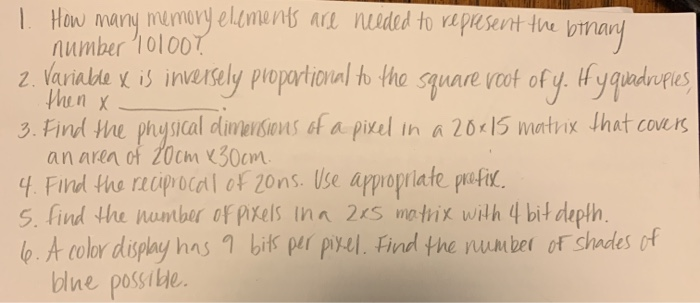 1. How many memory elements are needed to represent the binary
number 10100?
2. Variable x is inversely proportional to the square root of y. If y quadruples,
then x ________.
3. Find the physical dimensions of a pixel in a 20x15 matrix that covers
an area of 20cm x 30cm.
4. Find the reciprocal of 20ns. Use appropriate prefix.
5. Find the number of pixels in a 2x5 matrix with 4 bit depth.
6. A color display has 9 bits per pixel. Find the number of shades of
blue possible.